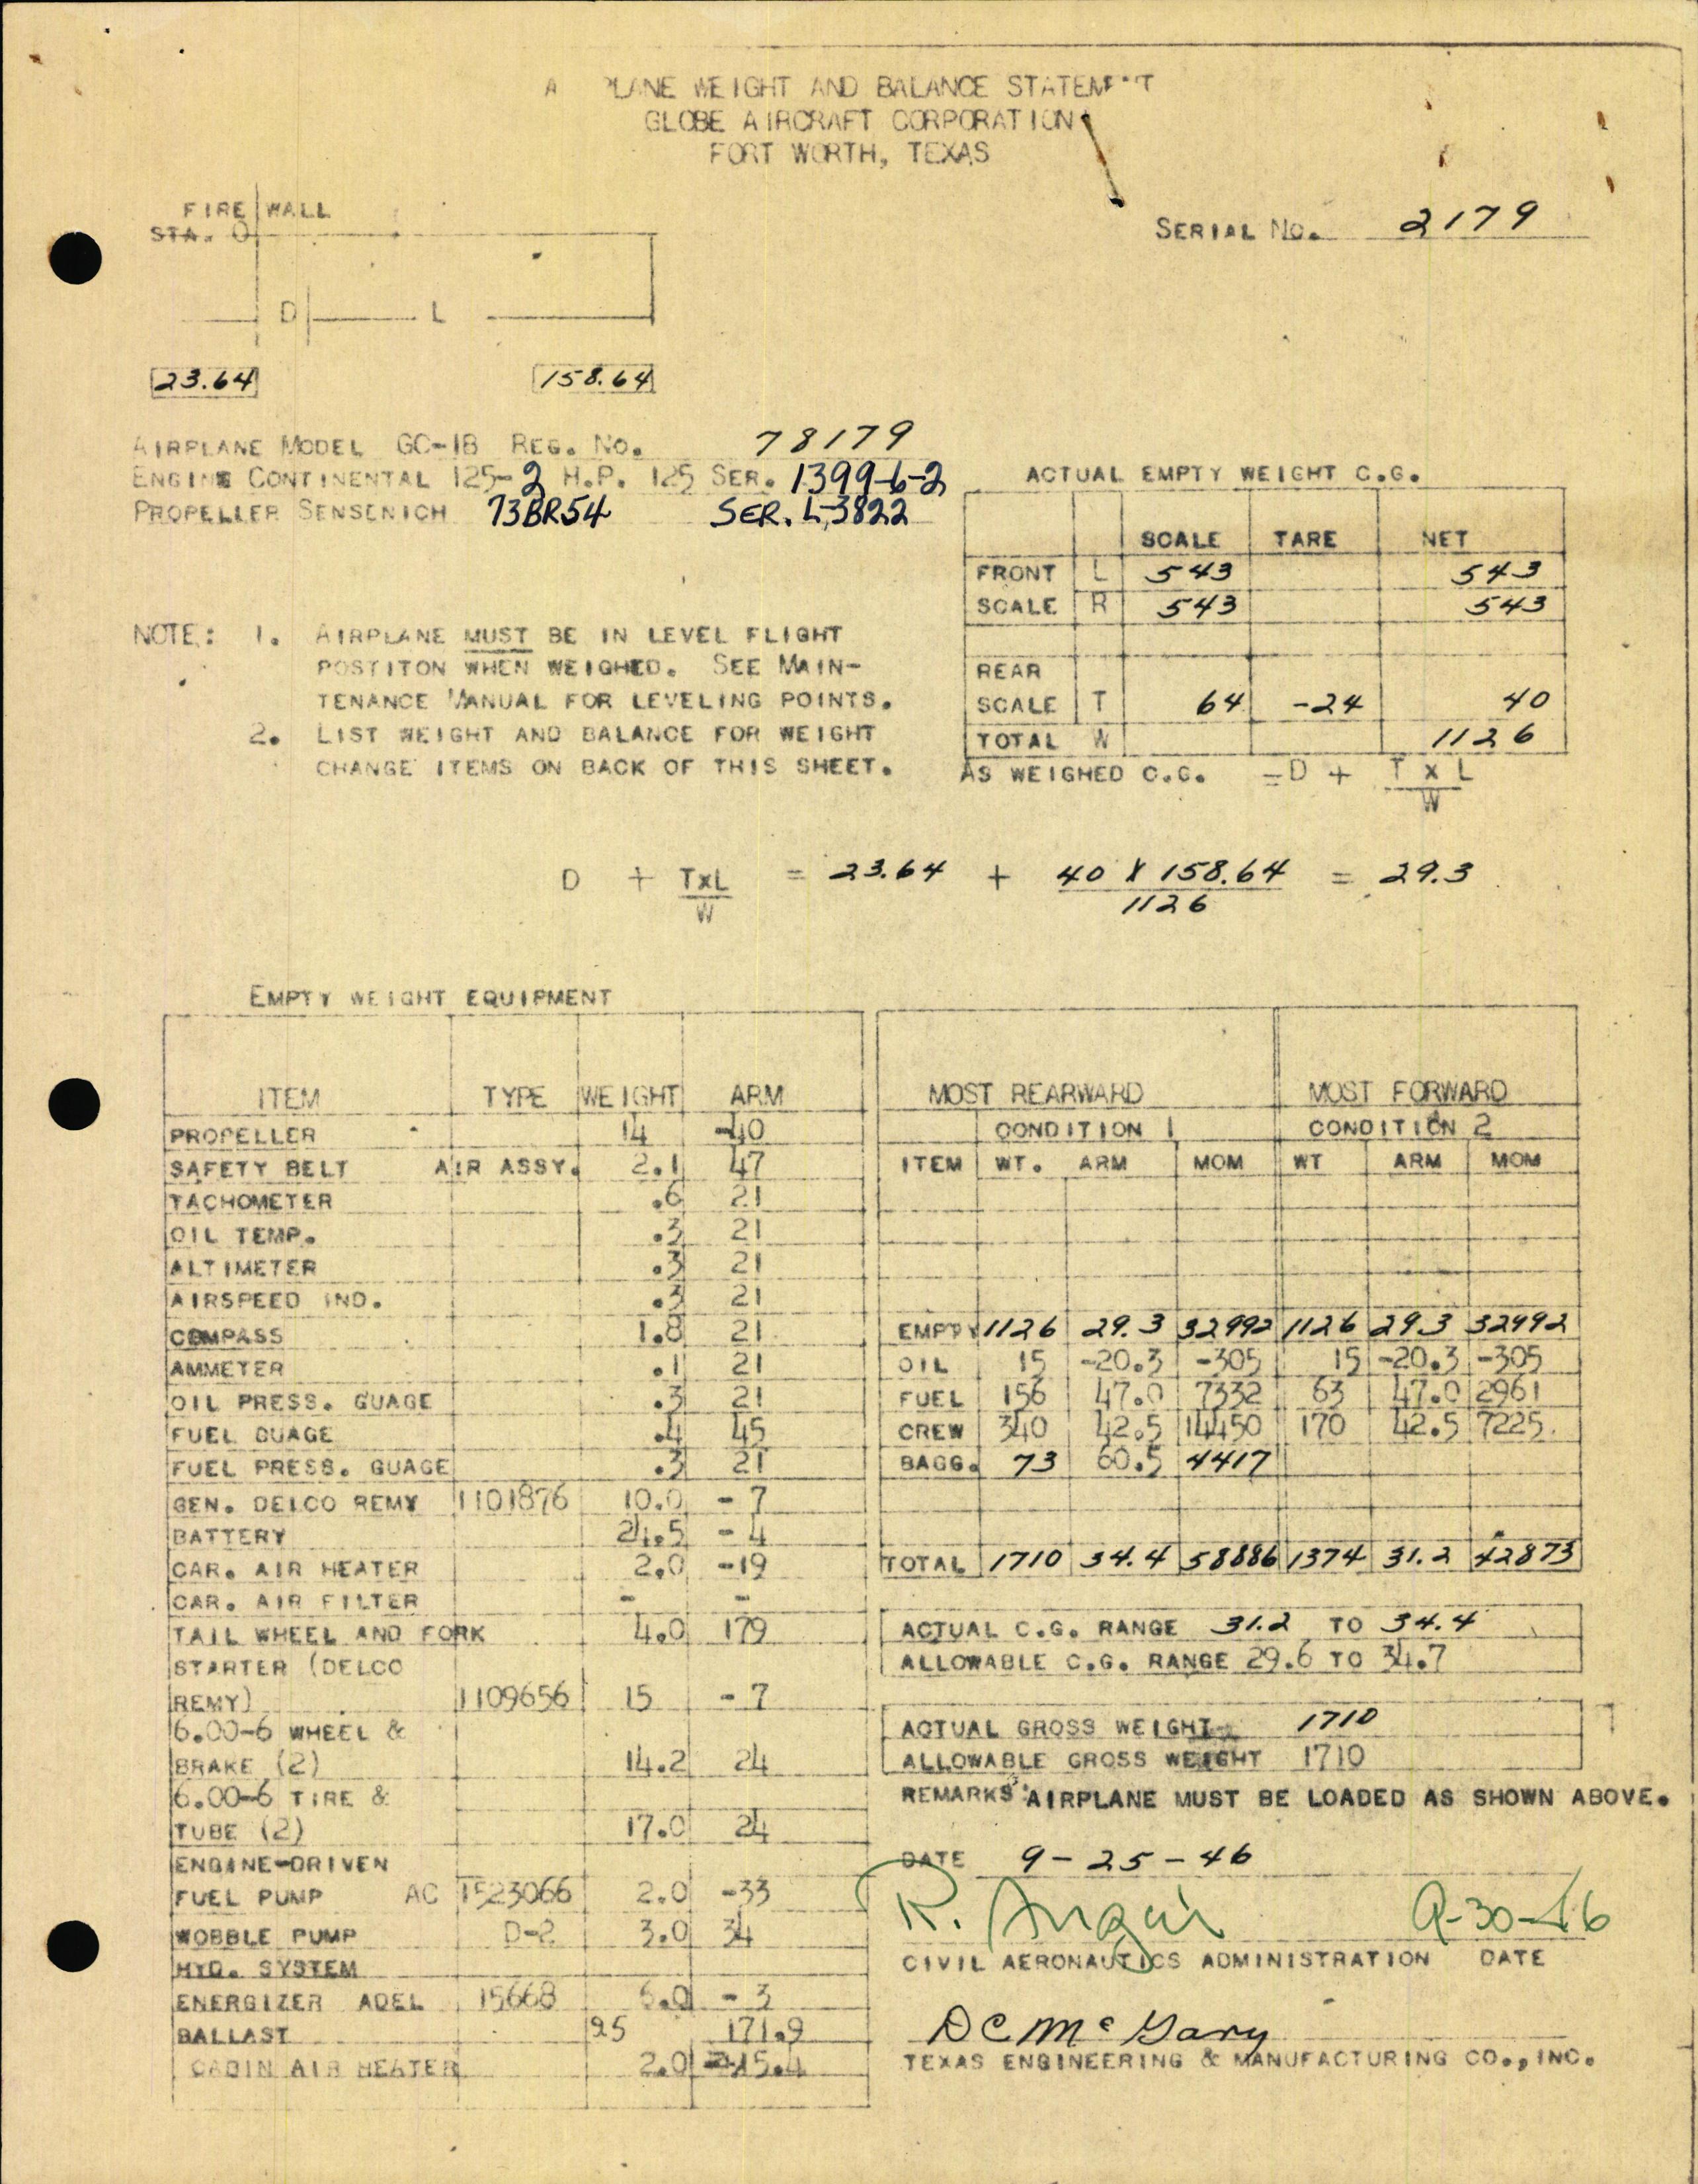 A PLANE WEIGHT AND BALANCE STATEMENT
GLOBE AIRCRAFT CORPORATION
FORT WORTH, TEXAS
FIRE WALL
STA. 0
SERIAL NO. 2179
D L
23.64 158.64
AIRPLANE MODEL GC-1B REG. NO. 78179
ENGINE CONTINENTAL 125-2 H.P. 125 SER. 1399-6-2
PROPELLER SENSENICH 73BR54 SER. L-3822
ACTUAL EMPTY WEIGHT C.G.
SCALE TARE NET
FRONT L 543 543
SCALE R 543 543
REAR
SCALE T 64 -24 40
TOTAL W 1126
AS WEIGHED C.G. = D + T x L
W
NOTE: 1. AIRPLANE MUST BE IN LEVEL FLIGHT
POSTITON WHEN WEIGHED. SEE MAIN-
TENANCE MANUAL FOR LEVELING POINTS.
2. LIST WEIGHT AND BALANCE FOR WEIGHT
CHANGE ITEMS ON BACK OF THIS SHEET.
D + TxL = 23.64 + 40 X 158.64 = 29.3
W 1126
EMPTY WEIGHT EQUIPMENT
ITEM TYPE WEIGHT ARM
PROPELLER 14 -40
SAFETY BELT AIR ASSY. 2.1 47
TACHOMETER .6 21
OIL TEMP. .3 21
ALTIMETER .3 21
AIRSPEED IND. .3 21
COMPASS 1.8 21
AMMETER .1 21
OIL PRESS. GUAGE .3 21
FUEL GUAGE .4 45
FUEL PRESS. GUAGE .3 21
GEN. DELCO REMY 1101876 10.0 - 7
BATTERY 24.5 - 4
CAR. AIR HEATER 2.0 -19
CAR. AIR FILTER - -
TAIL WHEEL AND FORK 4.0 179
STARTER (DELCO
REMY) 1109656 15 - 7
6.00-6 WHEEL &
BRAKE (2) 14.2 24
6.00-6 TIRE &
TUBE (2) 17.0 24
ENGINE-DRIVEN
FUEL PUMP AC 1523066 2.0 -33
WOBBLE PUMP D-2 3.0 34
HYD. SYSTEM
ENERGIZER ADEL 15668 6.0 - 3
BALLAST 25 171.9
CABIN AIR HEATER 2.0 -15.4
MOST REARWARD MOST FORWARD
CONDITION 1 CONDITION 2
ITEM WT. ARM MOM WT ARM MOM
EMPTY 1126 29.3 32992 1126 29.3 32992
OIL 15 -20.3 -305 15 -20.3 -305
FUEL 156 47.0 7332 63 47.0 2961
CREW 340 42.5 14450 170 42.5 7225
BAGG. 73 60.5 4417
TOTAL 1710 34.4 58886 1374 31.2 42873
ACTUAL C.G. RANGE 31.2 TO 34.4
ALLOWABLE C.G. RANGE 29.6 TO 34.7
ACTUAL GROSS WEIGHT 1710
ALLOWABLE GROSS WEIGHT 1710
REMARKS: AIRPLANE MUST BE LOADED AS SHOWN ABOVE.
DATE 9-25-46
R. 9-30-46
CIVIL AERONAUTICS ADMINISTRATION DATE
DC McGary
TEXAS ENGINEERING & MANUFACTURING CO., INC.